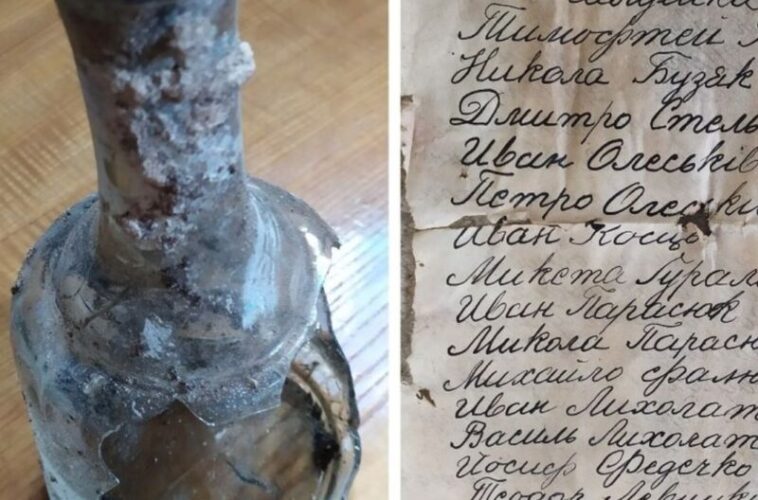 Тимофтей
Никола Бузяк
Дмитро Стель
Иван Олеськів
Петро Олеськи
Иван Косць
Микета Гурал
Иван Парасюк
Микола Парасю
Михайло Фалю
Иван Лихолат
Василь Лихолат
Иосиф Федечко
Теодор